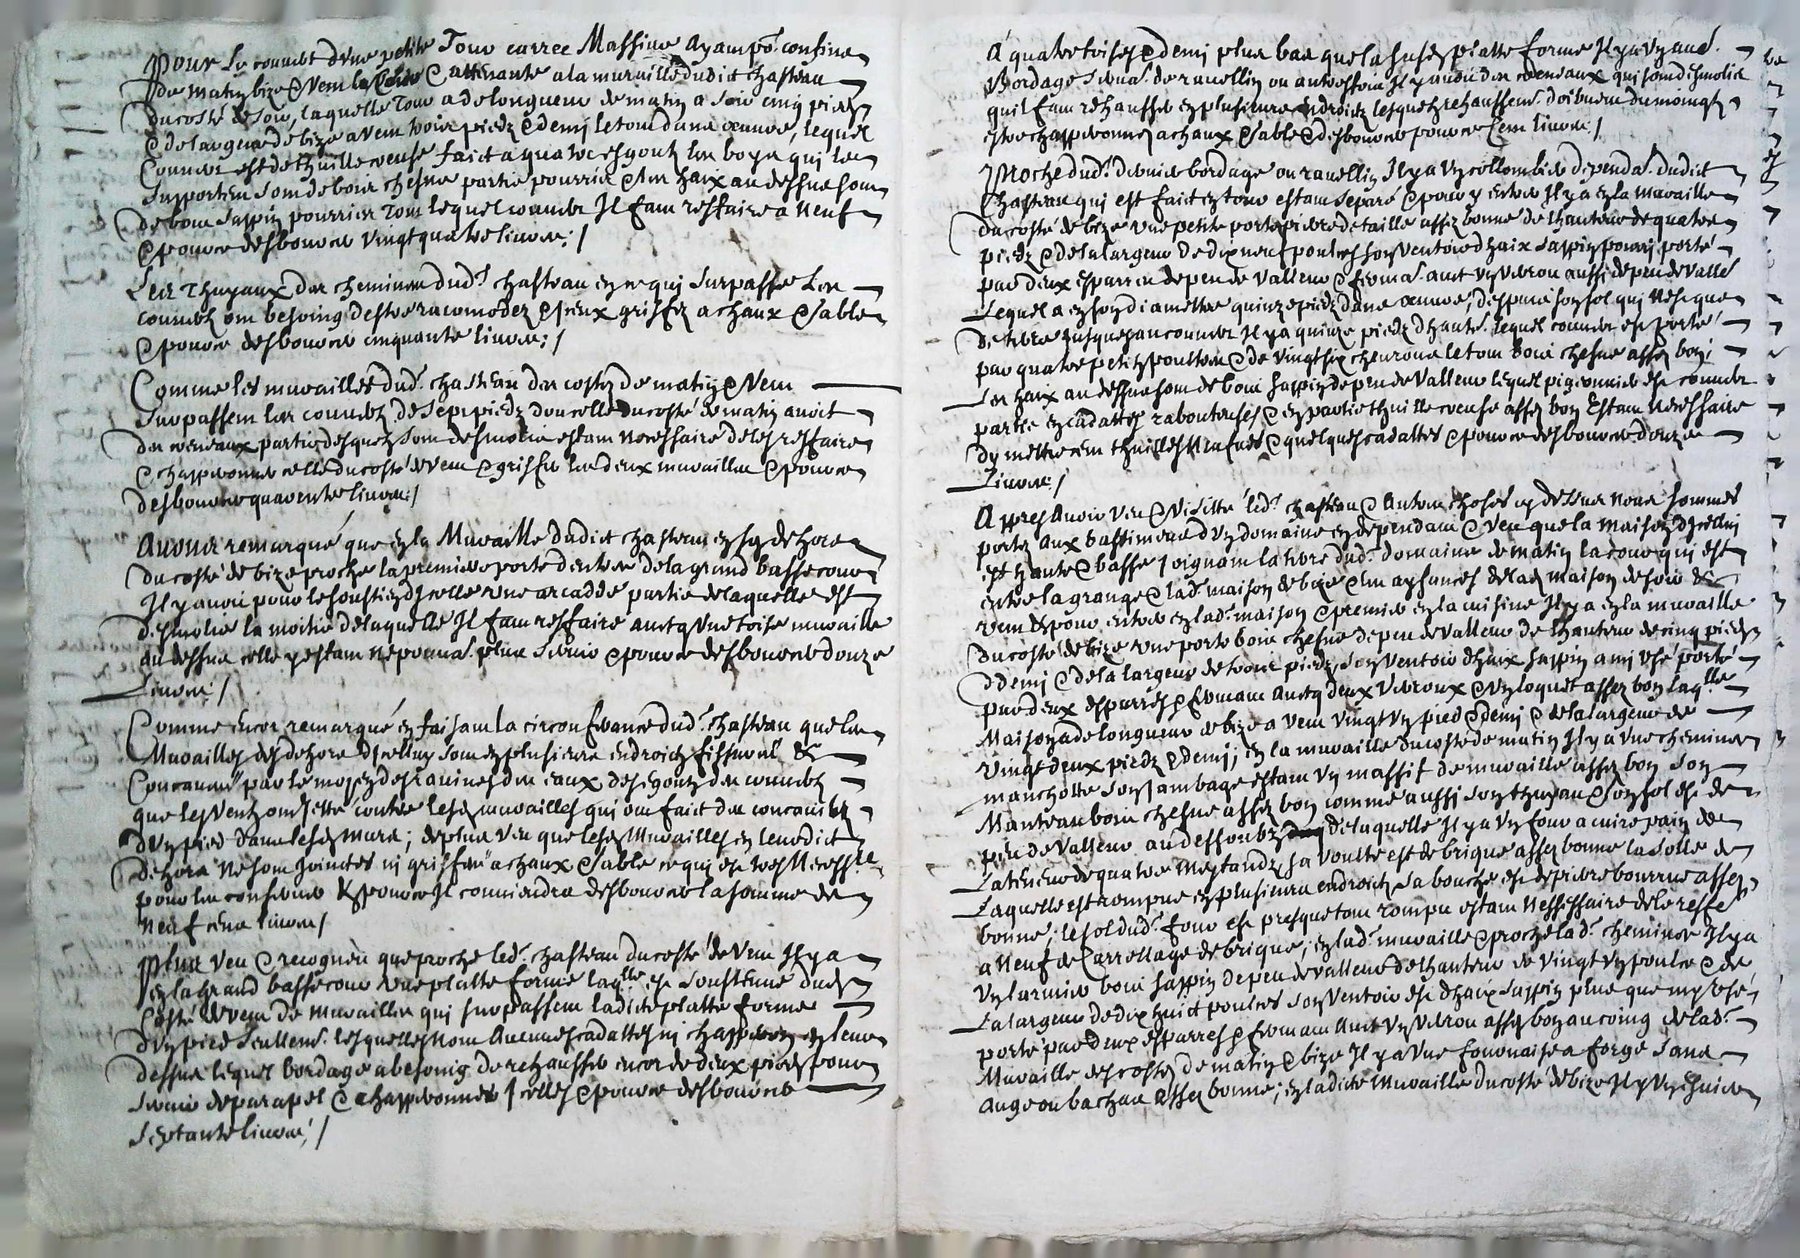 Pour le couuert d'vne petite Tour carree Massiue ayam po.r confine
de matin bize & vent la Cour & attenante a la muraille dudict chasteau
du costé de soir, laquelle Tour a de longueur de matin a soir cinq piedz
& de largeur de bize a vent trois piedz & demi le tout dans œuure, lequel
Couuer est de thuille creuse faict a quatre esgoutz les boys qui le
supportent sont de bois chesne partie pourris & les haix au dessus sont
de bois sappin pourrier tout lequel couuer Il faut reffaire a Neuf
& pource desbourcer vingt quatre liures; /
Les Thuyaux des cheminees dud.t chasteau en ce qui surpasse les
couuerts ont besoing destre racomodez & iceux grisser a chaux & sable
& pource desbourcer cinquante liures; /
Comme les murailles dud.t chasteau des costez de matin & vent
surpassent les couuertz de sept piedz dont celle du costé de matin auoit
des creneaux partie desquelz sont desmolis estant necessaire de les reffaire
& chapperonner celle du costé de vent & grisser les deux murailles & pource
desbourcer quarente liures; /
Auons remarqué que en la Muraille dudict chasteau en son dehors
du costé de bize proche la premiere porte d'entree de la grand bassecour
Il y auoit pour le soustien d'Icelle vne arcadde partie de laquelle est
desmolie la moitié de laquelle Il faut reffaire auecq vne toise muraille
au dessus celle y estant ne pouuat plus seruir & pource desbourcer douze
Liures; /
Comme encor remarqué en faisant la circonferance dud.t chasteau que les
Murailles des dehors d'Icelluy sont en plusieurs endroictz fissures &
Concauees par le moyen des rauines des eaux des esgoutz des couuertz
que les ventz ont jetté contre lesd. murailles qui ont faict des concauitez
d'vn pied dans lesd. murs; de plus veu que lesd. Murailles en leurdict
dehors ne sont Joinctes ni grissees a chaux & sable ce qui est tres Necess.re
pour les conseruer & pource Il conuiendra desbourcer la somme de
Neuf cens liures /
Plus veu & recogneu que proche led.t chasteau du costé de vent Il y a
en la grand bassecour vne platte forme laq.lle est soustenue dud.
costé de vent de murailles qui surpassent ladicte platte forme
d'vn pied seullem.t lesquelles n'ont aucunes cadattes ni chapperon en leur
dessus lequel bordage a besoing de rehausser encor de deux piedz pour
seruir de parapel & chapperonner Icelles & pource desbourcer
Septante liures; /
A quatre toises & demi plus bas que la susd. platte forme Il y a vn aud.
Bordage seruat de rauellin ou autresfois Il y auoit des creneaux qui sont desmolis
quil faut rehausser en plusieurs endroictz lesquelz rehaussem.t doibuent du moings
estre chapperonnez a chaux & sable & desbourcer pource Cent liures; /
Proche dud.t dernier bordage ou rauellin Il y a vn collombier dependa.t dudict
Chasteau qui est faict en tour estant separé & pour y entrer Il y a en la muraille
du costé de bize vne petite porte pierre de taille assez bonne de l'hauteur de quatre
piedz & de la largeur de dix neuf poulces son ventoir d'haix sappin pourri porté
par deux esparres de peu de valleur & ferma.t auec vn verrou aussi de peu de vall.r
Lequel a en son diamettre quinze piedz dans œuure, despuis son sol qui n'est que
de terre jusques au couuer Il y a quinze piedz d'haute.r lequel couuer est porté
par quatre petitz poultres & de vingt six cheurons le tout bois chesne assez bon;
Les haix au dessus sont de bois sappin de peu de valleur lequel pigeonnier est couuer
partie en cadattes raboteuses & en partie thuille creuse assez bon Estant necessaire
dy mettre cent thuilles Neufues & quelques cadattes & pource desbourcer douze
Liures; /
Appres Auoir veu & visitté led.t chasteau & autres choses cy dessus nous sommes
portez aux bastimens d'vn domaine en dependant & veu que la maison d'Icelluy
est haute & basse joignant la terre dud.t domaine de matin la cour qui est
entre la grange & lad. maison de bize & les aysances de lad. maison de soir &
vent & pour entrer en lad. maison & premier en la cuisine Il y a en la muraille
du costé de bize vne porte bois chesne de peu de valleur de l'hauteur de cinq piedz
& demi & de la largeur de trois piedz son ventoir d'haix sappin a mi vsé porté
par deux esparres & fermant auecq deux verroux & vn loquet assez bon laq.lle
Maison a de longueur de bize a vent vingt vn pied & demi & de la largeur de
vingt deux piedz & demi; en la muraille du costé de matin Il y a vne cheminee
manchotte son jambage estant vn massif de muraille assez bon son
Manteau bois chesne assez bon comme aussi son thuyau & son sol est de
peu de valleur au dessoubz de laquelle Il y a vn four a cuire pain de
La teneur de quatre Meytandz sa voulte est de brique assez bonne la solle de
Laquelle est rompue en plusieurs endroictz sa bouche est de pierre bourrue assez
bonne; le sol dud.t four est presque tout rompu estant nessessaire de le reffe.
a neuf de Carrellage de brique; en lad. muraille & proche lad. cheminee Il y a
vn larmier bois sappin de peu de valleur de l'hauteur de vingt vn poulce & de
La largeur de dix huict poulces son ventoir est d'haix sappin plus que my vsé
porté par deux esparres & fermant auec vn verrou assez bon au coing de lad.
Muraille des costez de matin & bize Il y a vne fournaise a forge sans
Auge ou bachat assez bonne; en ladicte muraille du costé de bize Il y vn euier